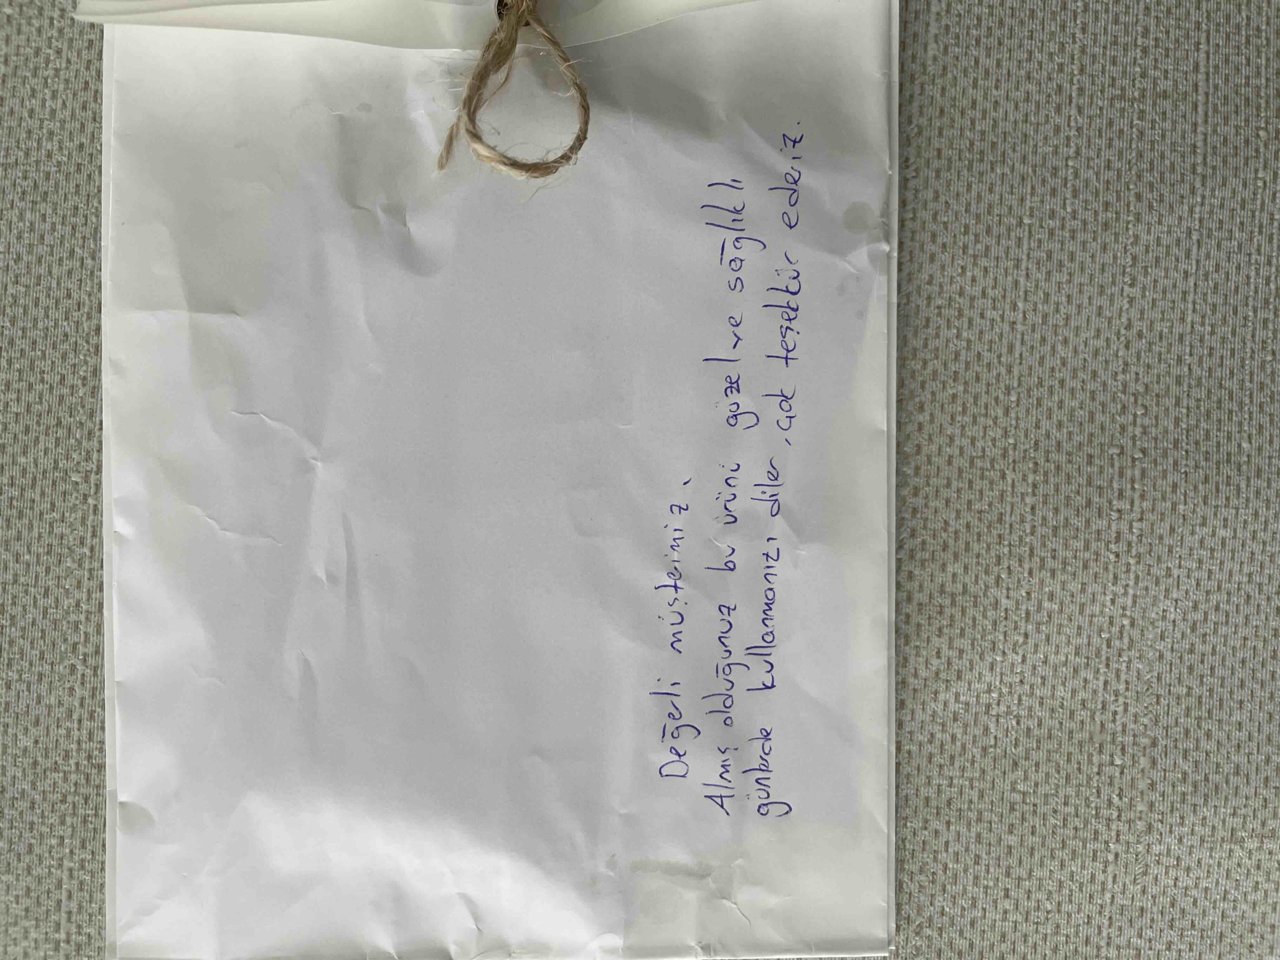 Değerli müşterimiz,
Almış olduğunuz bu ürünü güzel ve sağlıklı
günlerde kullanmanızı diler, çok teşekkür ederiz.